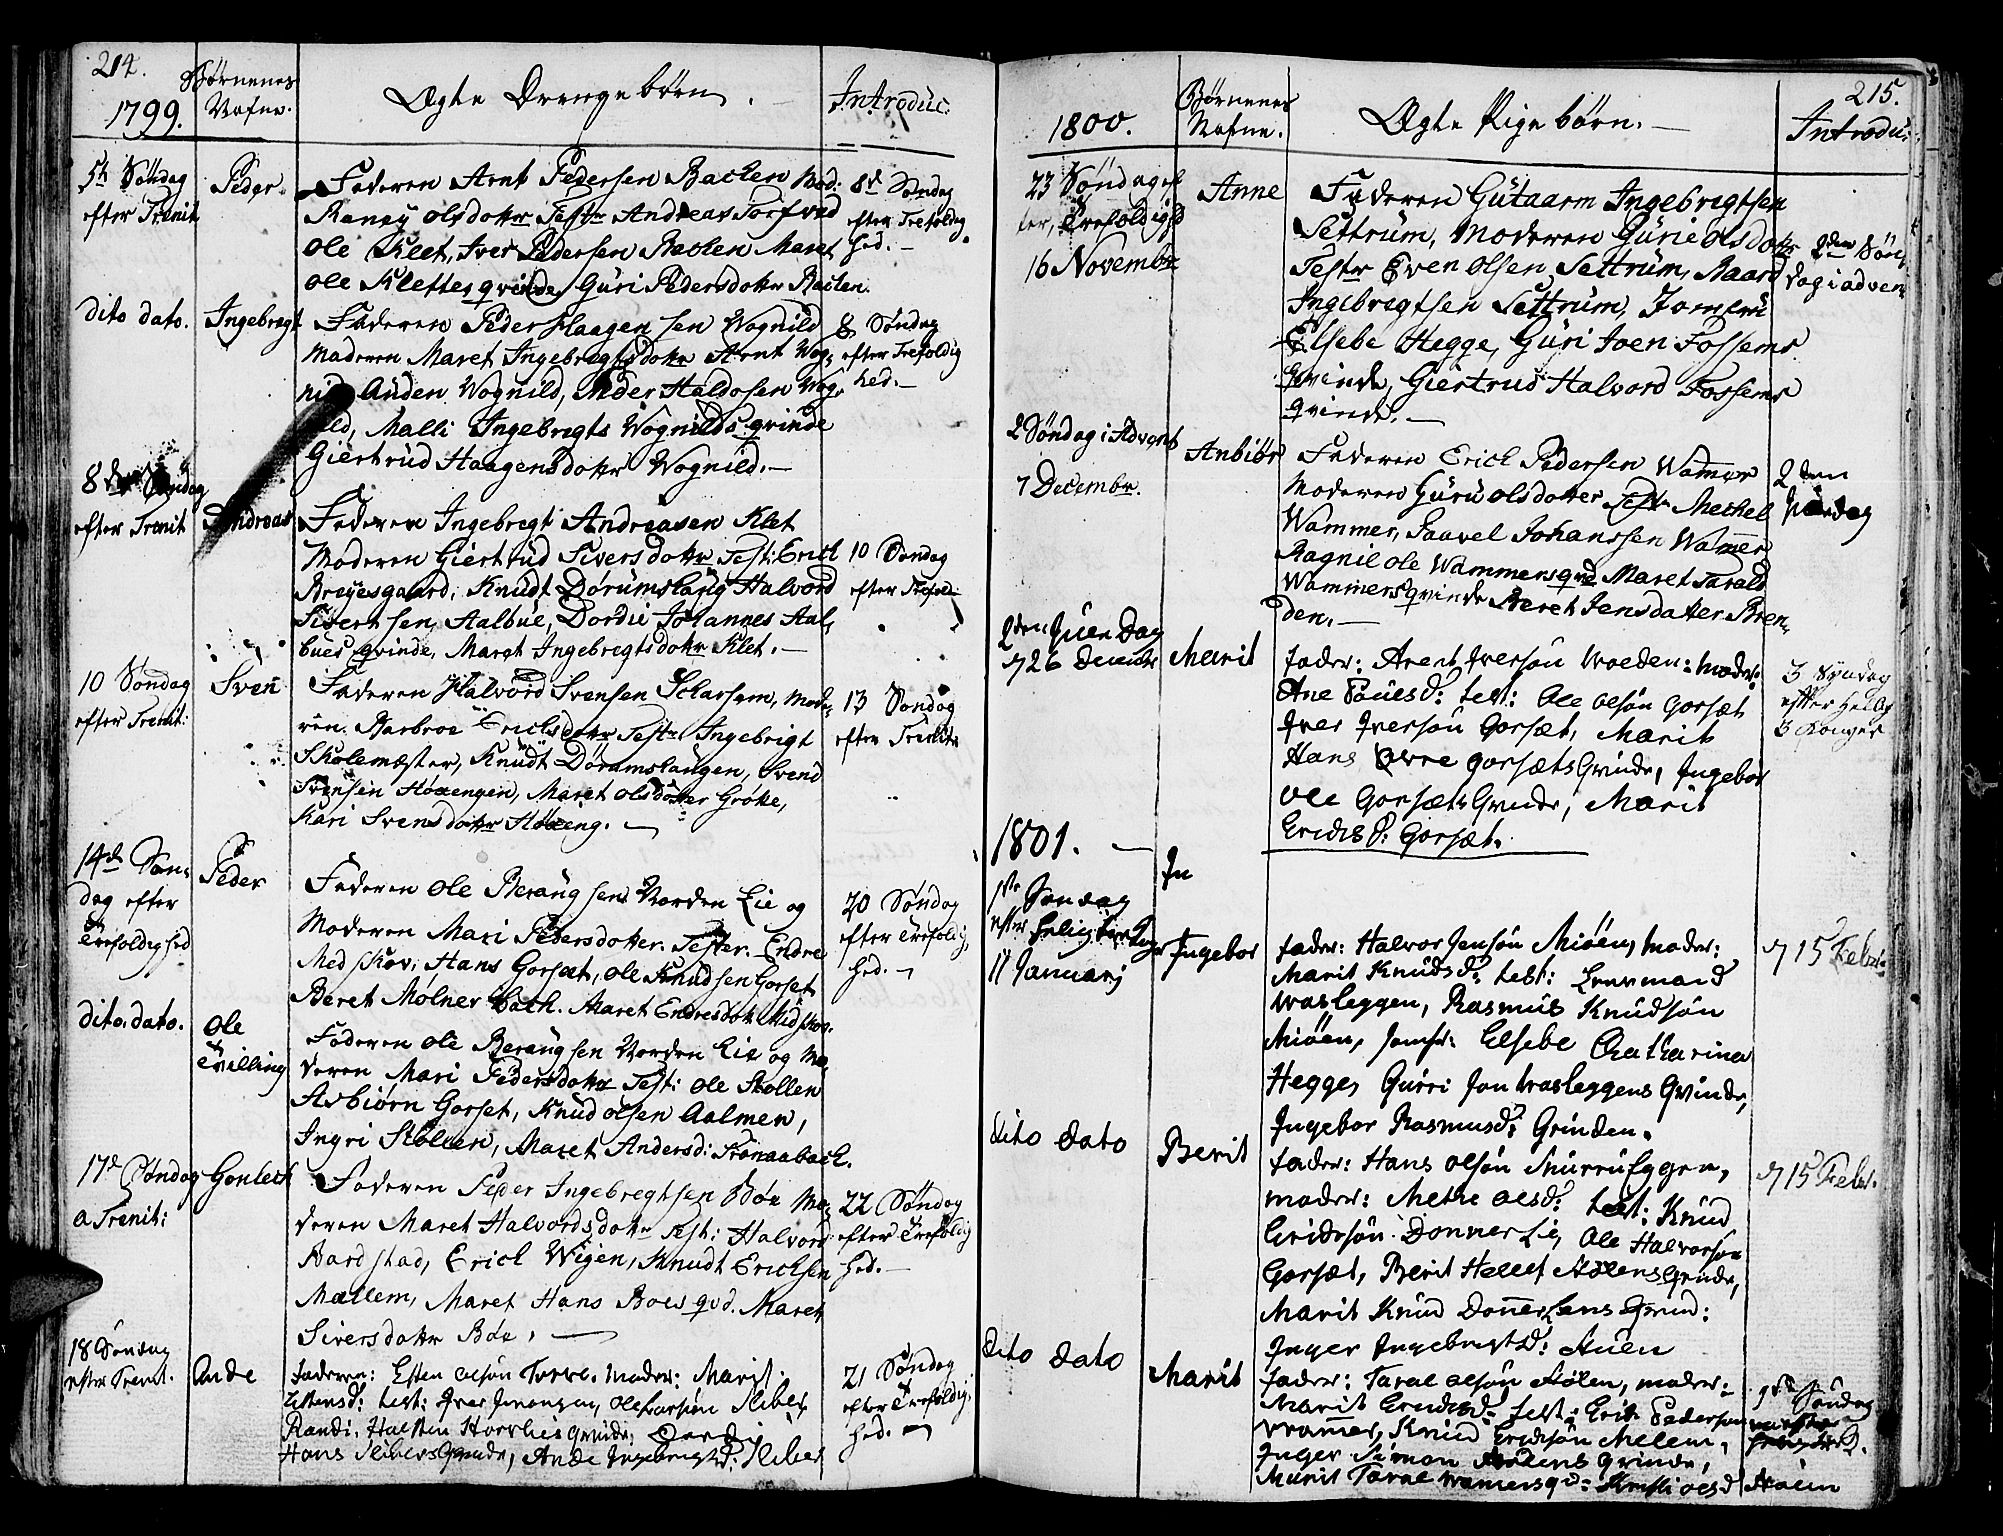 214.
1799.
Børnenes
Nafne.
Ægte Drengebørn.
Introduc:
5te Søndag
efter Trenit
Peder.
Faderen Arnt Pedersen Backen Mod:
Raney olsdotter Test. Andreas
Ole Klet, Iver Pedersen Backen Maret
Ole Klettes qvinde, Guri Pedersdotter Backen.
8de Søndag
efter Trefoldig
hed. —
dito dato.
Ingebregt
Faderen Peder Haagensen Wognild
Moderen Maret Ingebregtsdotter Arnt Wog-
nild Anden Wognild, Peder Haldosen Wog-
nild, Malli Ingebregts Wognilds qvinde
Giertrud Haagensdotter Wognild. —
8 Søndag
efter Trefoldig
hed. —
8de Søndag
efter Trenit
Andreas
Faderen Ingebregt Andreasen Klet
Moderen Giertrud Siversdotter Test: Erich
Brøyesgaard, Knudt Dørumslaug Halvord
Sivertsen Aalbue, Dordie Johannes Aal-
bues qvinde, Maret Ingebregtsdotter Klet. —
10 Søndag
efter Trefold
10 Søndag
efter Trenit:
Sven
Faderen Halvord Svensen Scharsem, Mode-
ren Barbroe Erichsdotter Test. Ingebrigt
Skolemæster, Knudt Dørumslaugen, Svend
Svensen Høxengen, Maret olsdotter Grøtte,
Kari Svensdotter Høxeng. —
13 Søndag
efter Trenit
14de Søn-
dag efter
Trefoldighed
Peder
Faderen Ole Beraugsen Norden Lie og
Moderen Mari Pedersdotter. Tester. Endre
Medskov, Hans Gorset, Ole Knudsen Gorset
Beret Mølner bach. Maret Endresdotr Midskov.
20 Søndag
efter Trefoldig
hed. —
dito. dato.
Ole
Tvilling
Faderen Ole Beraugsen Norden Lie og Mo-
deren Mari Pedersdotter Test: Ole Stollen
Asbiørn Gorset, Knud olsen Aalmen,
Ingri Stölen, Maret Andersd: Stonaabach.
17de Søndag
a Trenit:
Gonlech
Faderen Peder Ingebregtsen Böe Mo-
deren Maret Halvordsdotter Test: Halvord
Aardstad, Erich Wigen, Knudt Erichsen
Mællem, Maret Hans Boes qvd. Maret
Siversdotter Böe. —
22 Søndag
efter Trefoldig
hed. —
18 Søndag
efter Trenit.
Ande
Faderen: Esten olsøn Torve. Moder: Marit
Estensd: test: Iver Joransen, Ole Larsøn Sliber
Randi, Halsten Horrlies qvinde,
Hans Slibers Qvinde, Ande Ingebregtsd: Sliber
21 Søndag
efter Trefoldig
hed. —
215.
1800.
Børnenes
Nafne.
Ægte Pigebørn. —
Introdu:
23 Søndag ef
ter, Trefoldighd
16 Novembr
Anne
Faderen Gutaarm Ingebregtsen
Settrum, Moderen Gurie olsdotr
Testr Even Olsen Settrum, Baard
Ingebregtsen Settrum, Jomfru
Elsebe Hegge, Guri Joen Fossems
Qvinde, Giertrud Halvord Fossems
qvinde. —
2den Søn-
dag i adven
2 Søndag i Advent
7 Decembr.
Anbiør
Faderen Erich Pedersen Wammer
Moderen Guru olsdotter Test. Mechel
Wammer, Paavel Johanssen Wammer
Ragnil ole Wammers qvd Maret Tarald
Wammers qvinde Beret Jensdatter Bren-
den. —
2den
Juledag
2den Juele Dag
d 26 Decembr
Marit
Fader: Arent Iversøn Voeden: Moder:
Ane Povelsd: test: Ole olsøn Gorset
Iver Iversøn Gorsæt, Marit
Hans Øvre gorsæts Qvinde, Ingebor
Ole Gorsæts Qvinde, Marit
Erichsd: Gorsæt.
3 Syndag
efter Hellig
3 Konger
1801. —
In
1ste Søndag
efter hellig tre Konger
11 Januarj
Ingebor
Fader: Halvor Jensøn Miøen, Moder:
Marit Knudsd: test: Lensmand
Wasleggen, Rasmus Knudsøn
Miøen, Jomfr: Elsebe Chatharina
Hegge, Gurri Jon Wasleggens Qvinde,
Ingebor Rasmusd: Grinden.
d 15 Febr:
dito dato
Berit
Fader: Hans olsøn SnurruEggen,
moder: Methe olsd: test: Knud
Erichsøn DonnerLie, Ole Halvorsøn
Gorsæt, Berit Hellef Hølens Qvinde,
Marit Knud DonnerLies Qvind:
Inger Ingebregtsd: Huen
d 15 Febr.
dito dato
Marit
Fader: Taral olsøn Hølen, moder:
Marit Erichsd: test: Erich Pedersøn
Wammer, Knud Erichsøn Melem,
Inger Simon Hølens Qvinde,
Marit Taral Wamers qv: Kristi olsd Hølen
Søndag